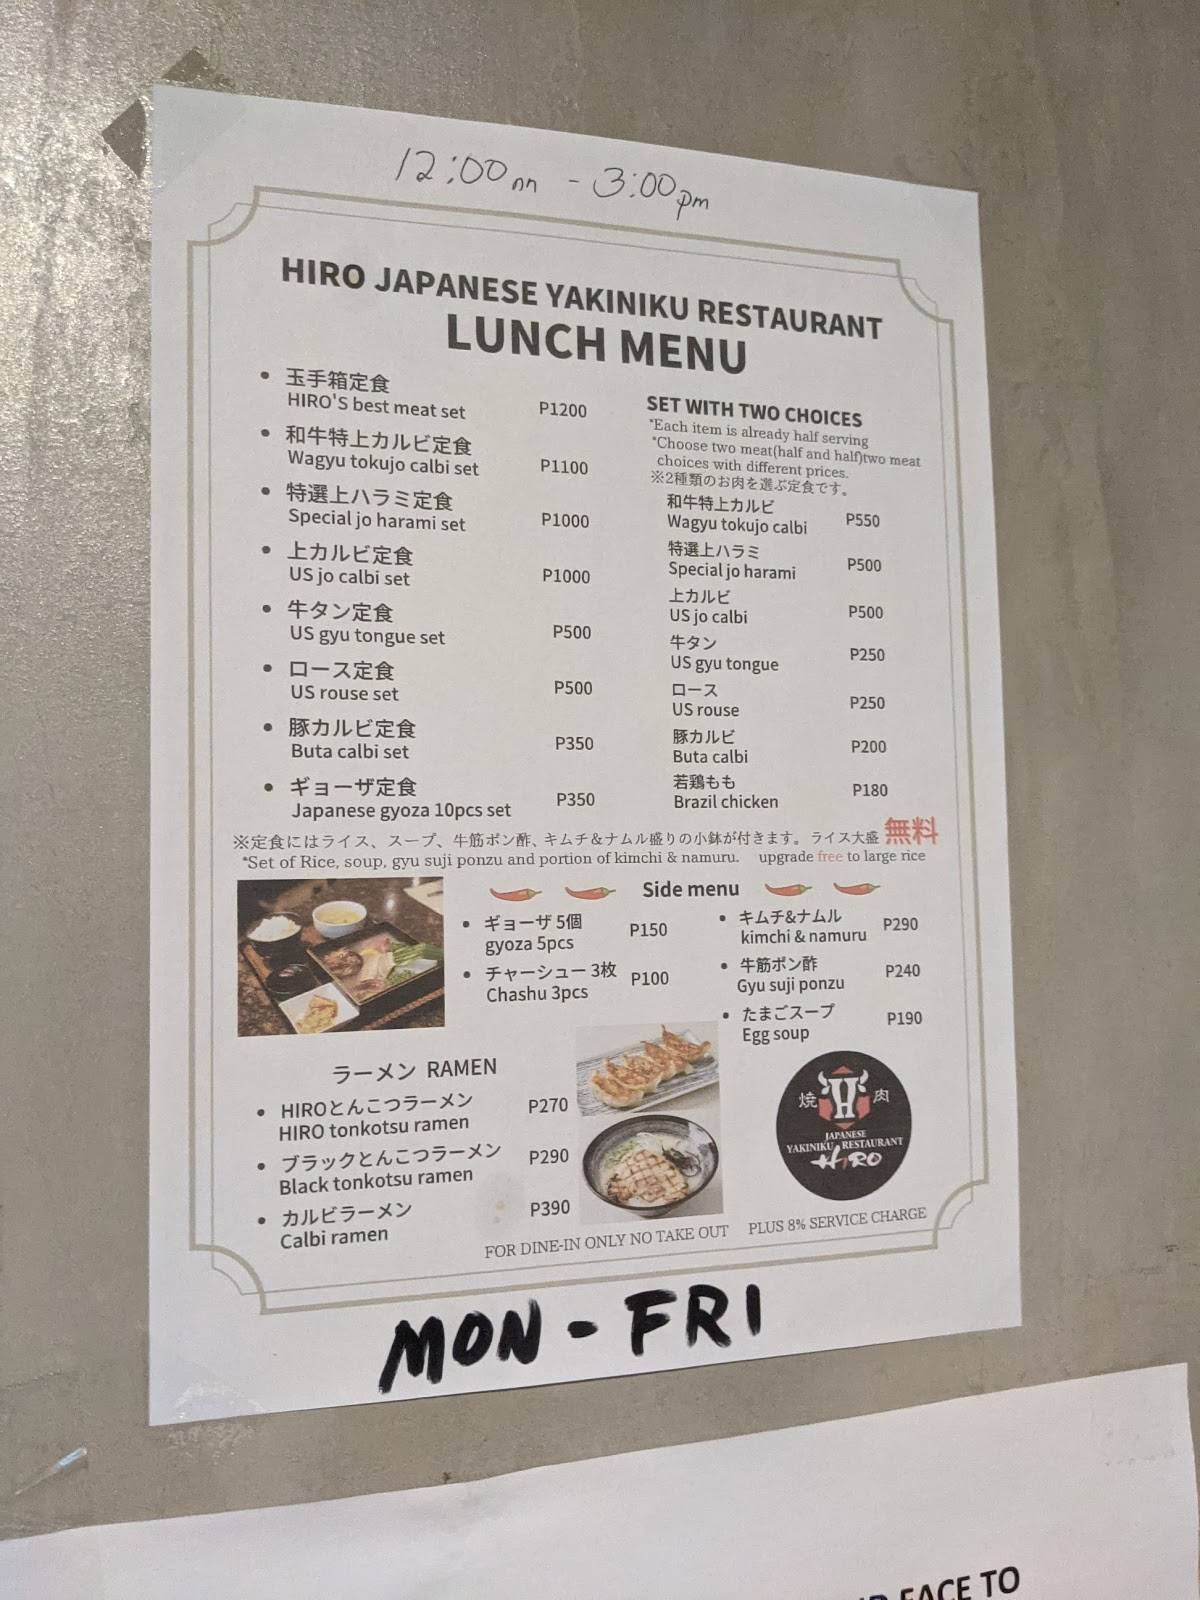 12:00nn - 3:00pm
HIRO JAPANESE YAKINIKU RESTAURANT
LUNCH MENU
• 玉手箱定食
HIRO'S best meat set P1200
• 和牛特上カルビ定食
Wagyu tokujo calbi set P1100
• 特選上ハラミ定食
Special jo harami set P1000
• 上カルビ定食
US jo calbi set P1000
• 牛タン定食
US gyu tongue set P500
• ロース定食
US rouse set P500
• 豚カルビ定食
Buta calbi set P350
• ギョーザ定食
Japanese gyoza 10pcs set P350
SET WITH TWO CHOICES
*Each item is already half serving
*Choose two meat(half and half)two meat
choices with different prices.
※2種類のお肉を選ぶ定食です。
和牛特上カルビ
Wagyu tokujo calbi P550
特選上ハラミ
Special jo harami P500
上カルビ
US jo calbi P500
牛タン
US gyu tongue P250
ロース
US rouse P250
豚カルビ
Buta calbi P200
若鶏もも
Brazil chicken P180
※定食にはライス、スープ、牛筋ポン酢、キムチ＆ナムル盛りの小鉢が付きます。 ライス大盛 無料
*Set of Rice, soup, gyu suji ponzu and portion of kimchi & namuru. upgrade free to large rice
Side menu
• ギョーザ 5個
gyoza 5pcs P150
• チャーシュー 3枚
Chashu 3pcs P100
• キムチ&ナムル
kimchi & namuru P290
• 牛筋ポン酢
Gyu suji ponzu P240
• たまごスープ
Egg soup P190
ラーメン RAMEN
• HIROとんこつラーメン
HIRO tonkotsu ramen P270
• ブラックとんこつラーメン
Black tonkotsu ramen P290
• カルビラーメン
Calbi ramen P390
焼 H 肉
JAPANESE
YAKINIKU RESTAURANT
HIRO
FOR DINE-IN ONLY NO TAKE OUT PLUS 8% SERVICE CHARGE
MON - FRI
FACE TO